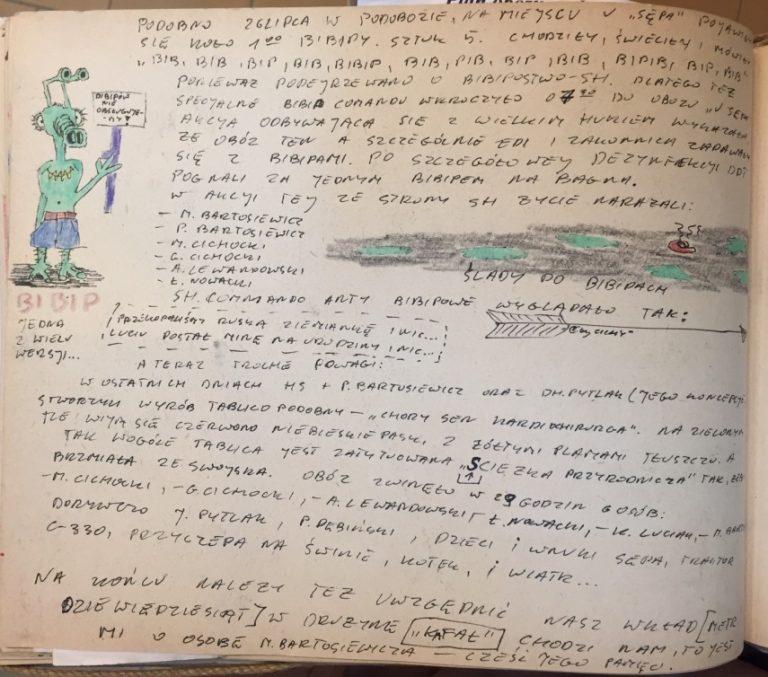 PODOBNO 26 LIPCA W PODOBOZIE, NA MIEJSCU U „SĘPA"
SIĘ KOŁO 1⁰⁰ BIBIPY. SZTUK 5. CHODZIŁY, ŚWIECIŁY I
„BIB, BIB, BIP, BIB, BIBIP, BIB, PIB, BIP, BIB, BIPIB, BIP, BIB"
PONIEWAŻ PODEJRZEWANO O BIBIPOSTWO-SH. DLATEGO TEŻ
SPECJALNE BIBIP COMANDO WKROCZYŁO O 7⁰⁰ DO OBOZU „U SĘPA
AKCJA ODBYWAJĄCA SIĘ Z WIELKIM HUKIEM WYKAZAŁA
ŻE OBÓZ TEN A SZCZEGÓLNIE EDI I ZAKONNICA ZADAWALI
SIĘ Z BIBIPAMI. PO SZCZEGÓŁOWEJ DEZYNFEKCJI DDT
POGNALI ZA JEDNYM BIBIPEM NA BAGNA.
W AKCJI TEJ ZE STRONY SH ŻYCIE NARAŻALI:
– M. BARTOSIEWICZ
– P. BARTOSIEWICZ
– M. CICHOCKI
– G. CICHOCKI
– A. LEWANDOWSKI
– Ł. NOWACKI
BIBIPÓW
NIE
BIBIP
JEDNA
Z WIELU
WERSJI...
ŚLADY PO BIBIPACH
SH. COMMANDO ANTY BIBIPOWE WYGLĄDAŁO TAK:
PRZEKOPALIŚMY RUSKĄ ZIEMIANKĘ I NIC...
LUCJU DOSTAŁ MINĘ NA URODZINY I NIC...
A TERAZ TROCHĘ POWAGI:
W OSTATNICH DNIACH HS + P. BARTOSIEWICZ ORAZ DH. PYTLAK (JEGO KONCEPCJA)
STWORZYLI WYRÓB TABLICO PODOBNY – „CHORY SEN KARDIOCHIRURGA". NA ZIELONYM
TLE WIJĄ SIĘ CZERWONO NIEBIESKIE PASKI, Z ŻÓŁTYMI PLAMAMI TŁUSZCZU. A
TAK WOGÓLE TABLICA JEST ZATYTUOWANA „ŚCIEŻKA PRZYRODNICZA" TAK, ŻEBY
BRZMIAŁA ZE SWOJSKA. OBÓZ ZWINĘŁO W 29 GODZIN 6 OSÓB:
– M. CICHOCKI, – G. CICHOCKI, – A. LEWANDOWSKI, Ł. NOWACKI, – K. LUCIAK, – M. BART
DORYWCZO J. PYTLAK, P. DĘBIŃSKI, DZIECI I WNUKI SĘPA, TRAKTOR
C-330, PRZYCZEPA NA ŚWINIE, KOTEK, I WIATR...
NA KOŃCU NALEŻY TEŻ UWZGĘDNIĆ NASZ WKŁAD [METR
DZIEWIĘDZIESIĄT] W DRUŻYNĘ „KAFAŁ" CHODZI NAM, TO JEST
MI O OSOBĘ M. BARTOSIEWICZA – CZEŚĆ JEGO PAMIĘCI.